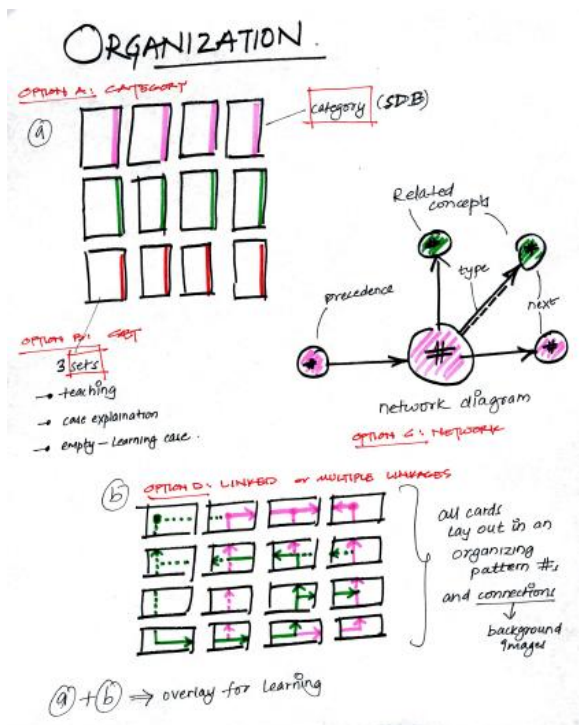 ORGANIZATION.
OPTION A: CATEGORY
a
category (SDB)
Related
concepts
type
precedence
next
#
network diagram
OPTION C: NETWORK
OPTION B: SET
3 sets
teaching
case explaination
empty – learning case.
b OPTION D: LINKED or MULTIPLE LINKAGES
all cards
lay out in an
organizing
pattern #s
and connections
background
images
a + b ⇒ overlay for learning